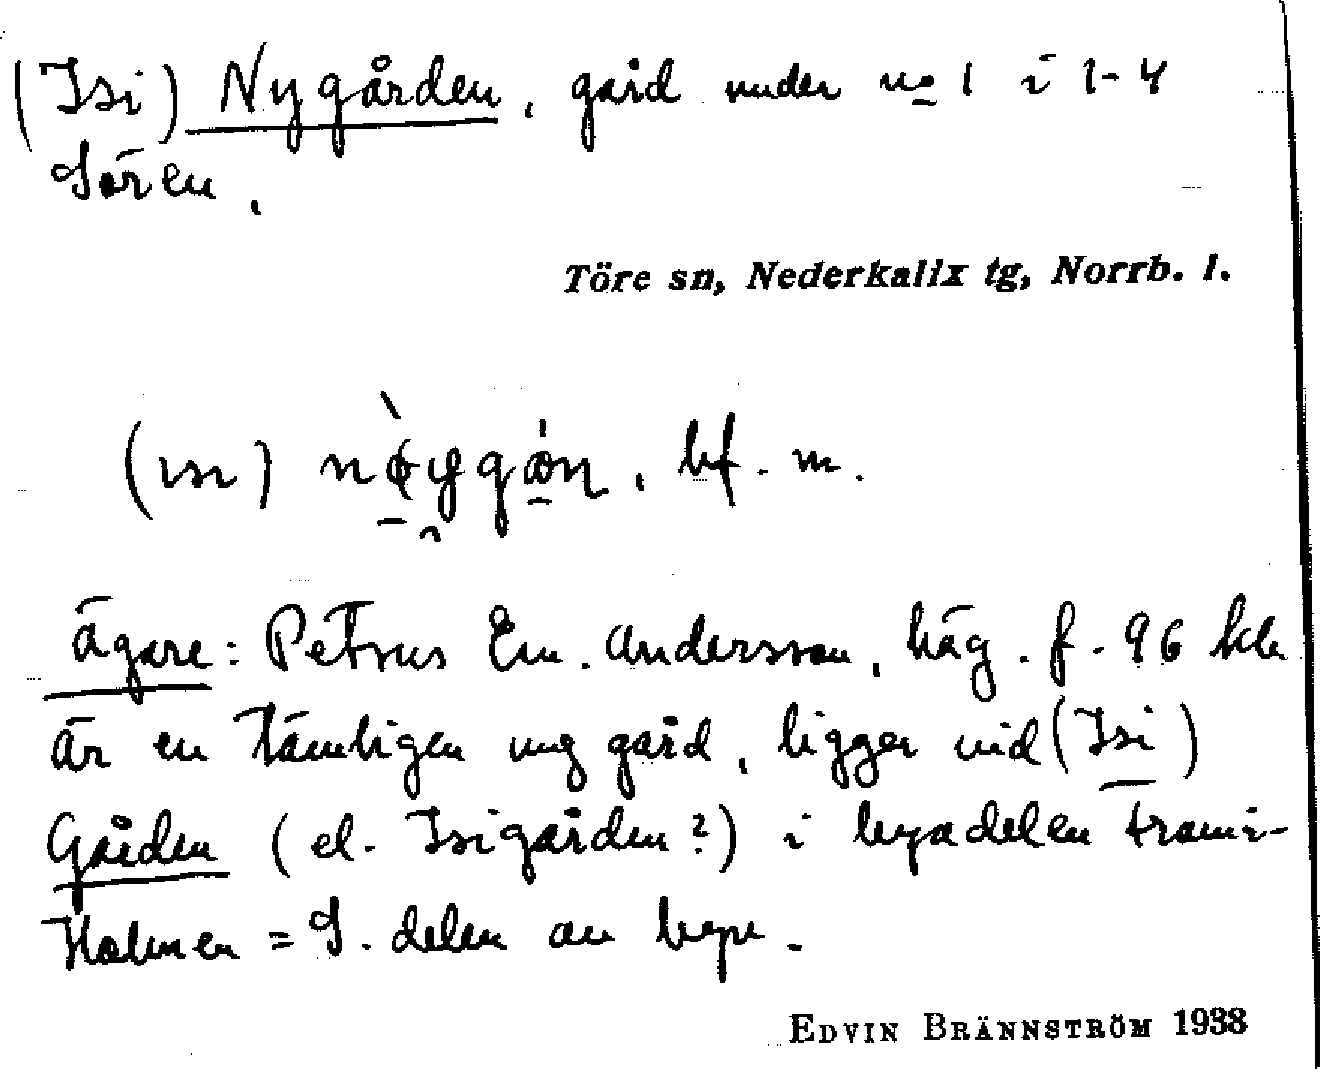 (Isi) Nygården, gård under no 1 i 1-4
Sören.
Töre sn, Nederkalix tg, Norrb. l.
(ısı) bf. m.
ägare: Petrus Em. Andersson, häg. f. 96 kla
är en tämligen ung gård, ligger vid (Isi)
Gården (el. Isigården?) i byadelen Frami-
Holmen = S. delen av byn.
EDVIN BRÄNNSTRÖM 1938